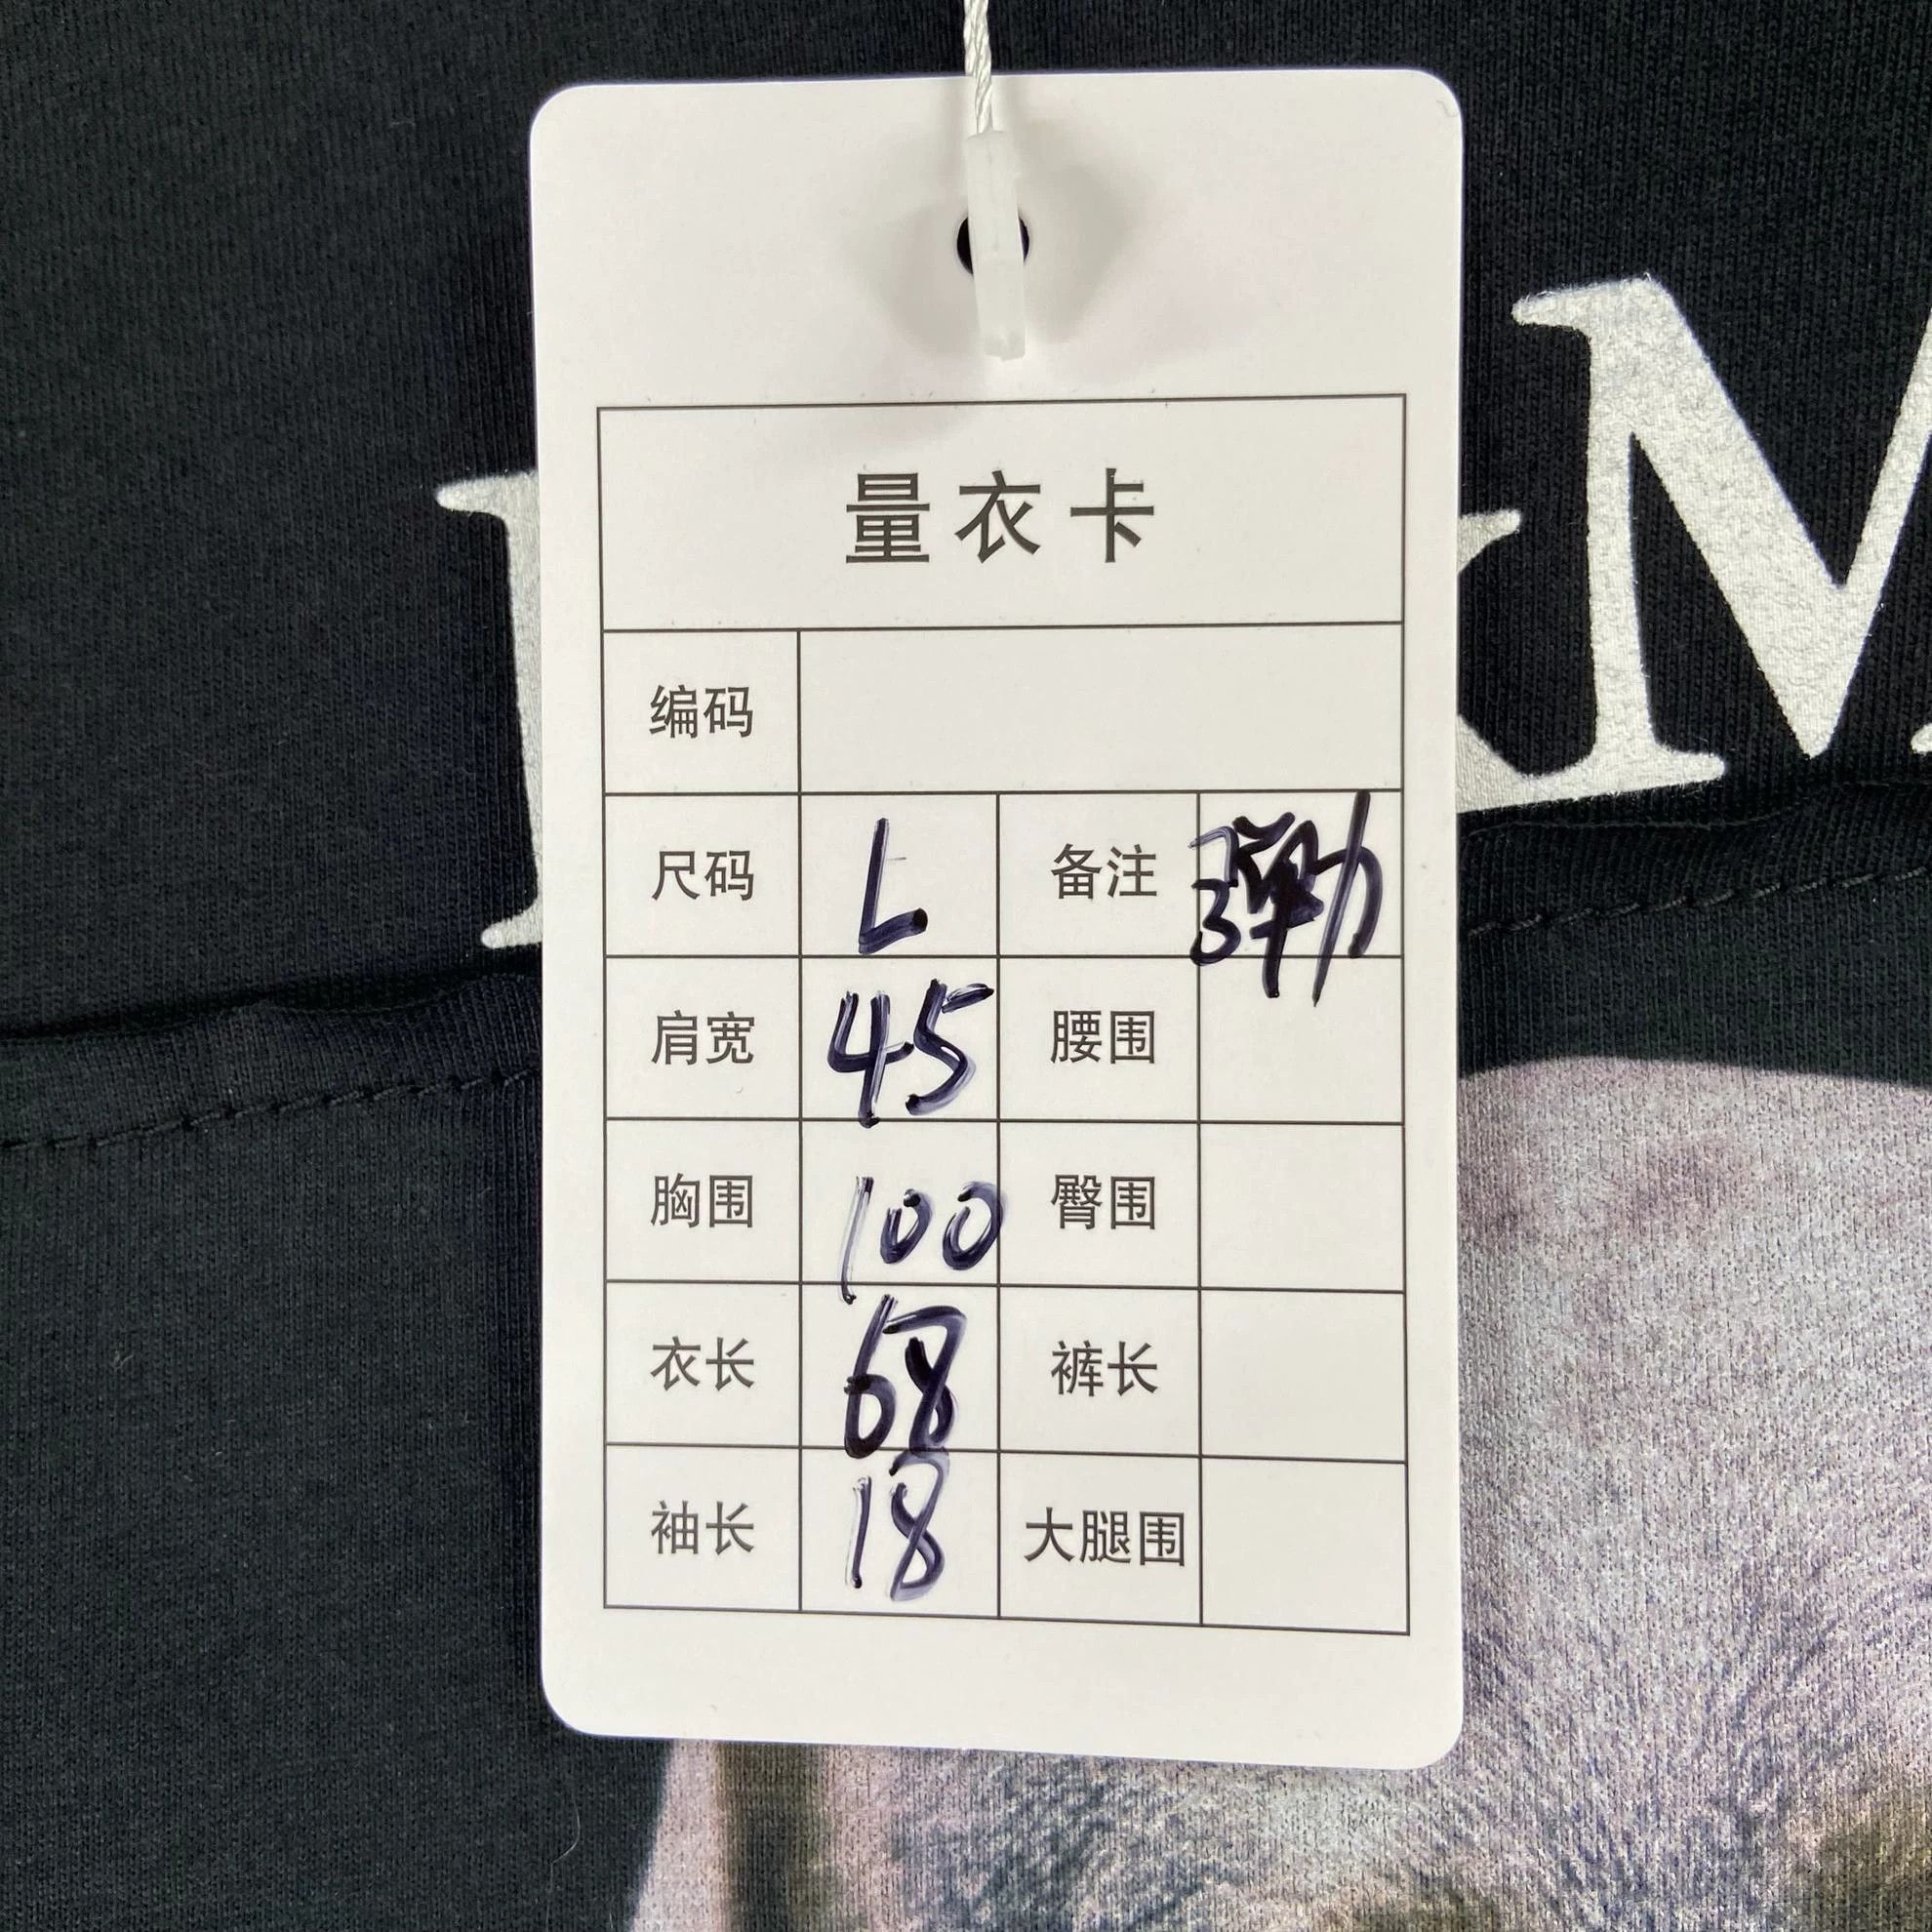 量衣卡
编码
尺码 L 备注 弹力
肩宽 45 腰围
胸围 100 臀围
衣长 68 裤长
袖长 18 大腿围
M